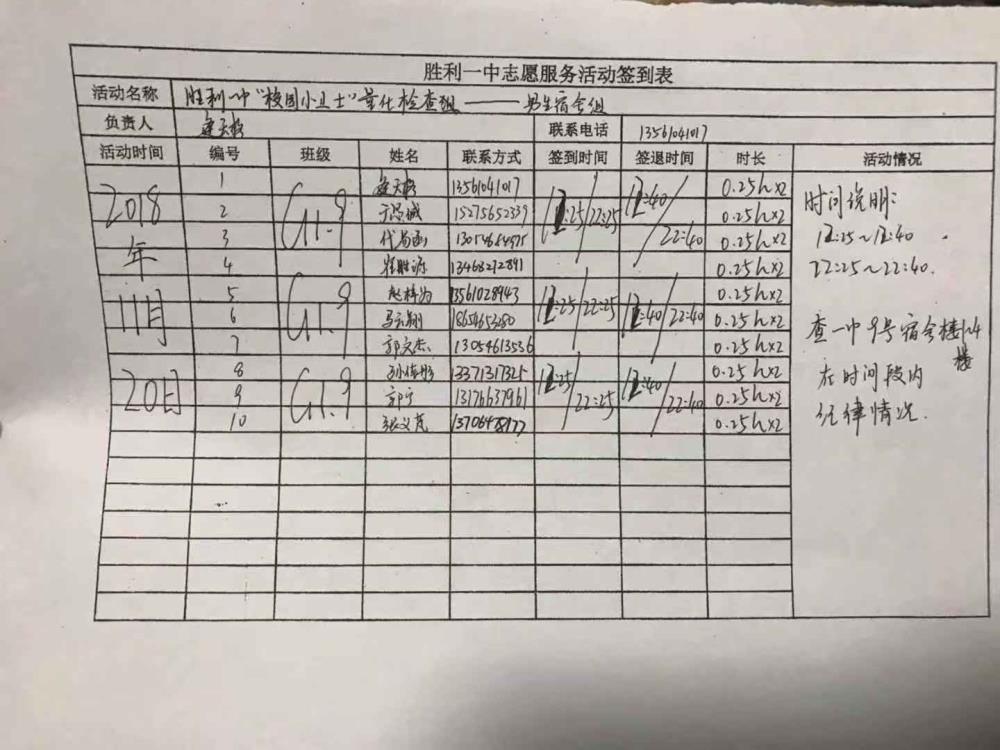 胜利一中志愿服务活动签到表
活动名称 胜利一中"校园小卫士"量化检查组——男生宿舍组
负责人 联系电话 13561041017
活动时间 编号 班级 姓名 联系方式 签到时间 签退时间 时长 活动情况
2018年11月20日
1 G1.9 13561041017 12:25/22:25 12:40/22:40 0.25h×2
2 15275652339 0.25h×2
3 0.25h×2
4 13468272891 0.25h×2
5 G1.9 13561028943 12:25/22:25 12:40/22:40 0.25h×2
6 0.25h×2
7 郭文杰 13054613536 0.25h×2
8 G1.9 13371317325 12:25/22:25 12:40/22:40 0.25h×2
9 郭宁 13176637961 0.25h×2
10 0.25h×2
时间说明:
12:25~12:40
22:25~22:40.
查一中9号宿舍楼1~4楼
在时间段内
纪律情况.